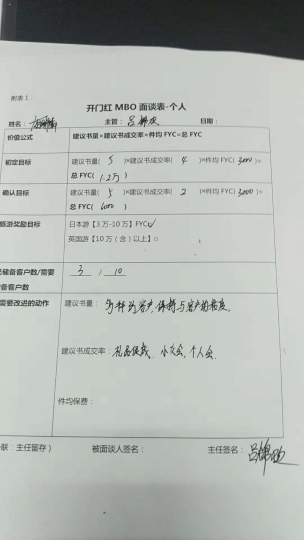 附表1：
开门红 MBO 面谈表-个人
姓名： 主管：吕锦 日期：
价值公式 建议书量×建议书成交率×件均 FYC=总 FYC
初定目标 建议书量( 5 )×建议书成交率( 4 )×件均 FYC( 3000 )=
总 FYC( 1.2万 )
确认目标 建议书量( 5 )×建议书成交率( 2 )×件均 FYC( 3000 )=
总 FYC( 6000 )
旅游奖励目标 日本游【3 万-10 万】FYC✓
英国游【10 万（含）以上】□
储备客户数/需要 3 / 10
备客户数
需要改进的动作 建议书量：约客户,保持与客户的
建议书成交率：礼品促成、小交会,个人会.
件均保费：
联：主任留存） 被面谈人签名： 主任签名：吕锦